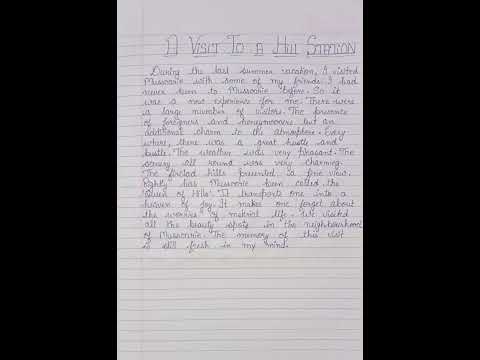 A VISIT TO A HILL STATION
During the last summer vacation, I visited
Mussoorie with some of my friends. I had
never been to Mussoorie before. So it
was a new experience for me. There were
a large number of visitors. The presence
of foreigners and honeymooners lent an
additional charm to the atmosphere. Every
where, there was a great hustle and
bustle. The weather was very pleasant. The
scenery all round was very charming.
The fir-clad hills presented a fine view.
Rightly has Mussoorie been called the
'Queen of Hills'. It transports one into a
heaven of joy. It makes one forget about
the worries of material life. We visited
all the beauty spots in the neighbourhood
of Mussoorie. The memory of this visit
is still fresh in my mind.